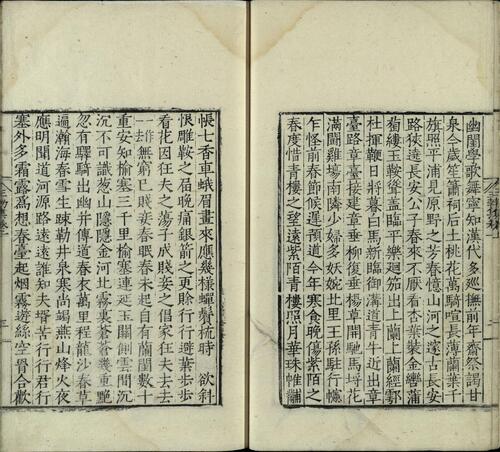 幽閨學歌舞寧知漢代多巡撫前年齋祭謁甘
泉今歲笙簫祠后土桃花萬騎喧長薄蘭葉千
旗照平浦見原野之芳春憶山河之邃古長安
路狹遶長安公子春來不厭看杏葉裝金轡蒲
萄縷玉鞍聳蓋臨平樂廻笳出上蘭上蘭經鄠
杜揮鞭日將暮白馬新臨御溝道青牛近出章
臺路章臺接建章垂柳復垂楊草開馳馬埒花
滿鬬雞場南隣少婦多妖婉北里王孫駐行幰
乍怪前春節候遲預道今年寒食晚傷紫陌之
春度惜青樓之望遠紫陌青樓照月華珠帷黼
帳七香車蛾眉畫來應幾樣蟬鬢梳時欲斜
恨雕鞍之屆晚痛銀箭之更賒行行避葉步步
看花因狂夫之蕩子成賤妾之倡家狂夫去去
一作一去無窮已賤妾春眠春未起自有蘭閨數十
重安知榆塞三千里榆塞連延玉關側雲間沉
沉不可識葱山隱隱金河北霧裏蒼蒼幾重
忽有驛騎出幽并傳道春衣萬里程龍沙春草
遍瀚海春雪生疎勒井泉寒尚竭燕山烽火夜
應明聞道河源路遠遠誰知夫壻苦行行君行
塞外多霜露為想春臺起烟霧遊絲空罥合歡